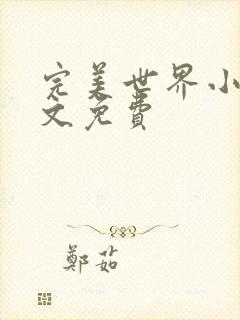 完美世界小
文免費
鄭茹